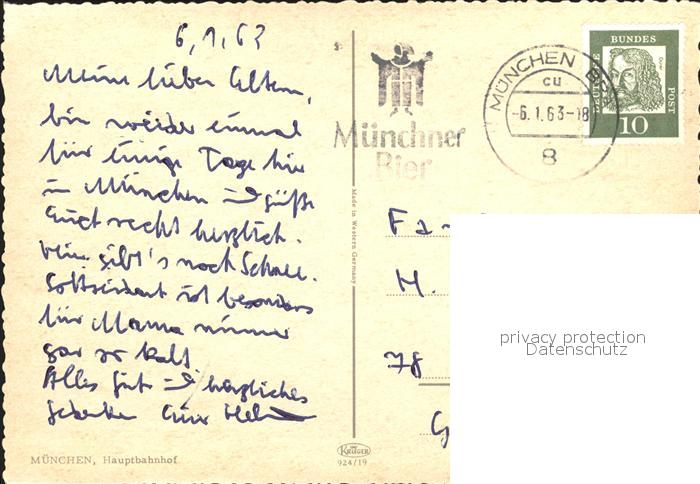 6.1.63
Meine lieben Eltern,
bin wieder einmal
für einige Tage hier
in München und grüße
Euch recht herzlich.
Hier gibt's noch Schnee.
Gottseidank ist besonders
für Mama nimmer
gar so kalt
Alles Gute und herzliches
Gedenken Euer
MÜNCHEN, Hauptbahnhof
Made in Western Germany
KRÜGER
924/19
Münchner
Bier
MÜNCHEN BPA
cu
-6.1.63-18
8
DEUTSCHE BUNDESPOST
Dürer
10
Fa
H.
78
G
privacy protection
Datenschutz